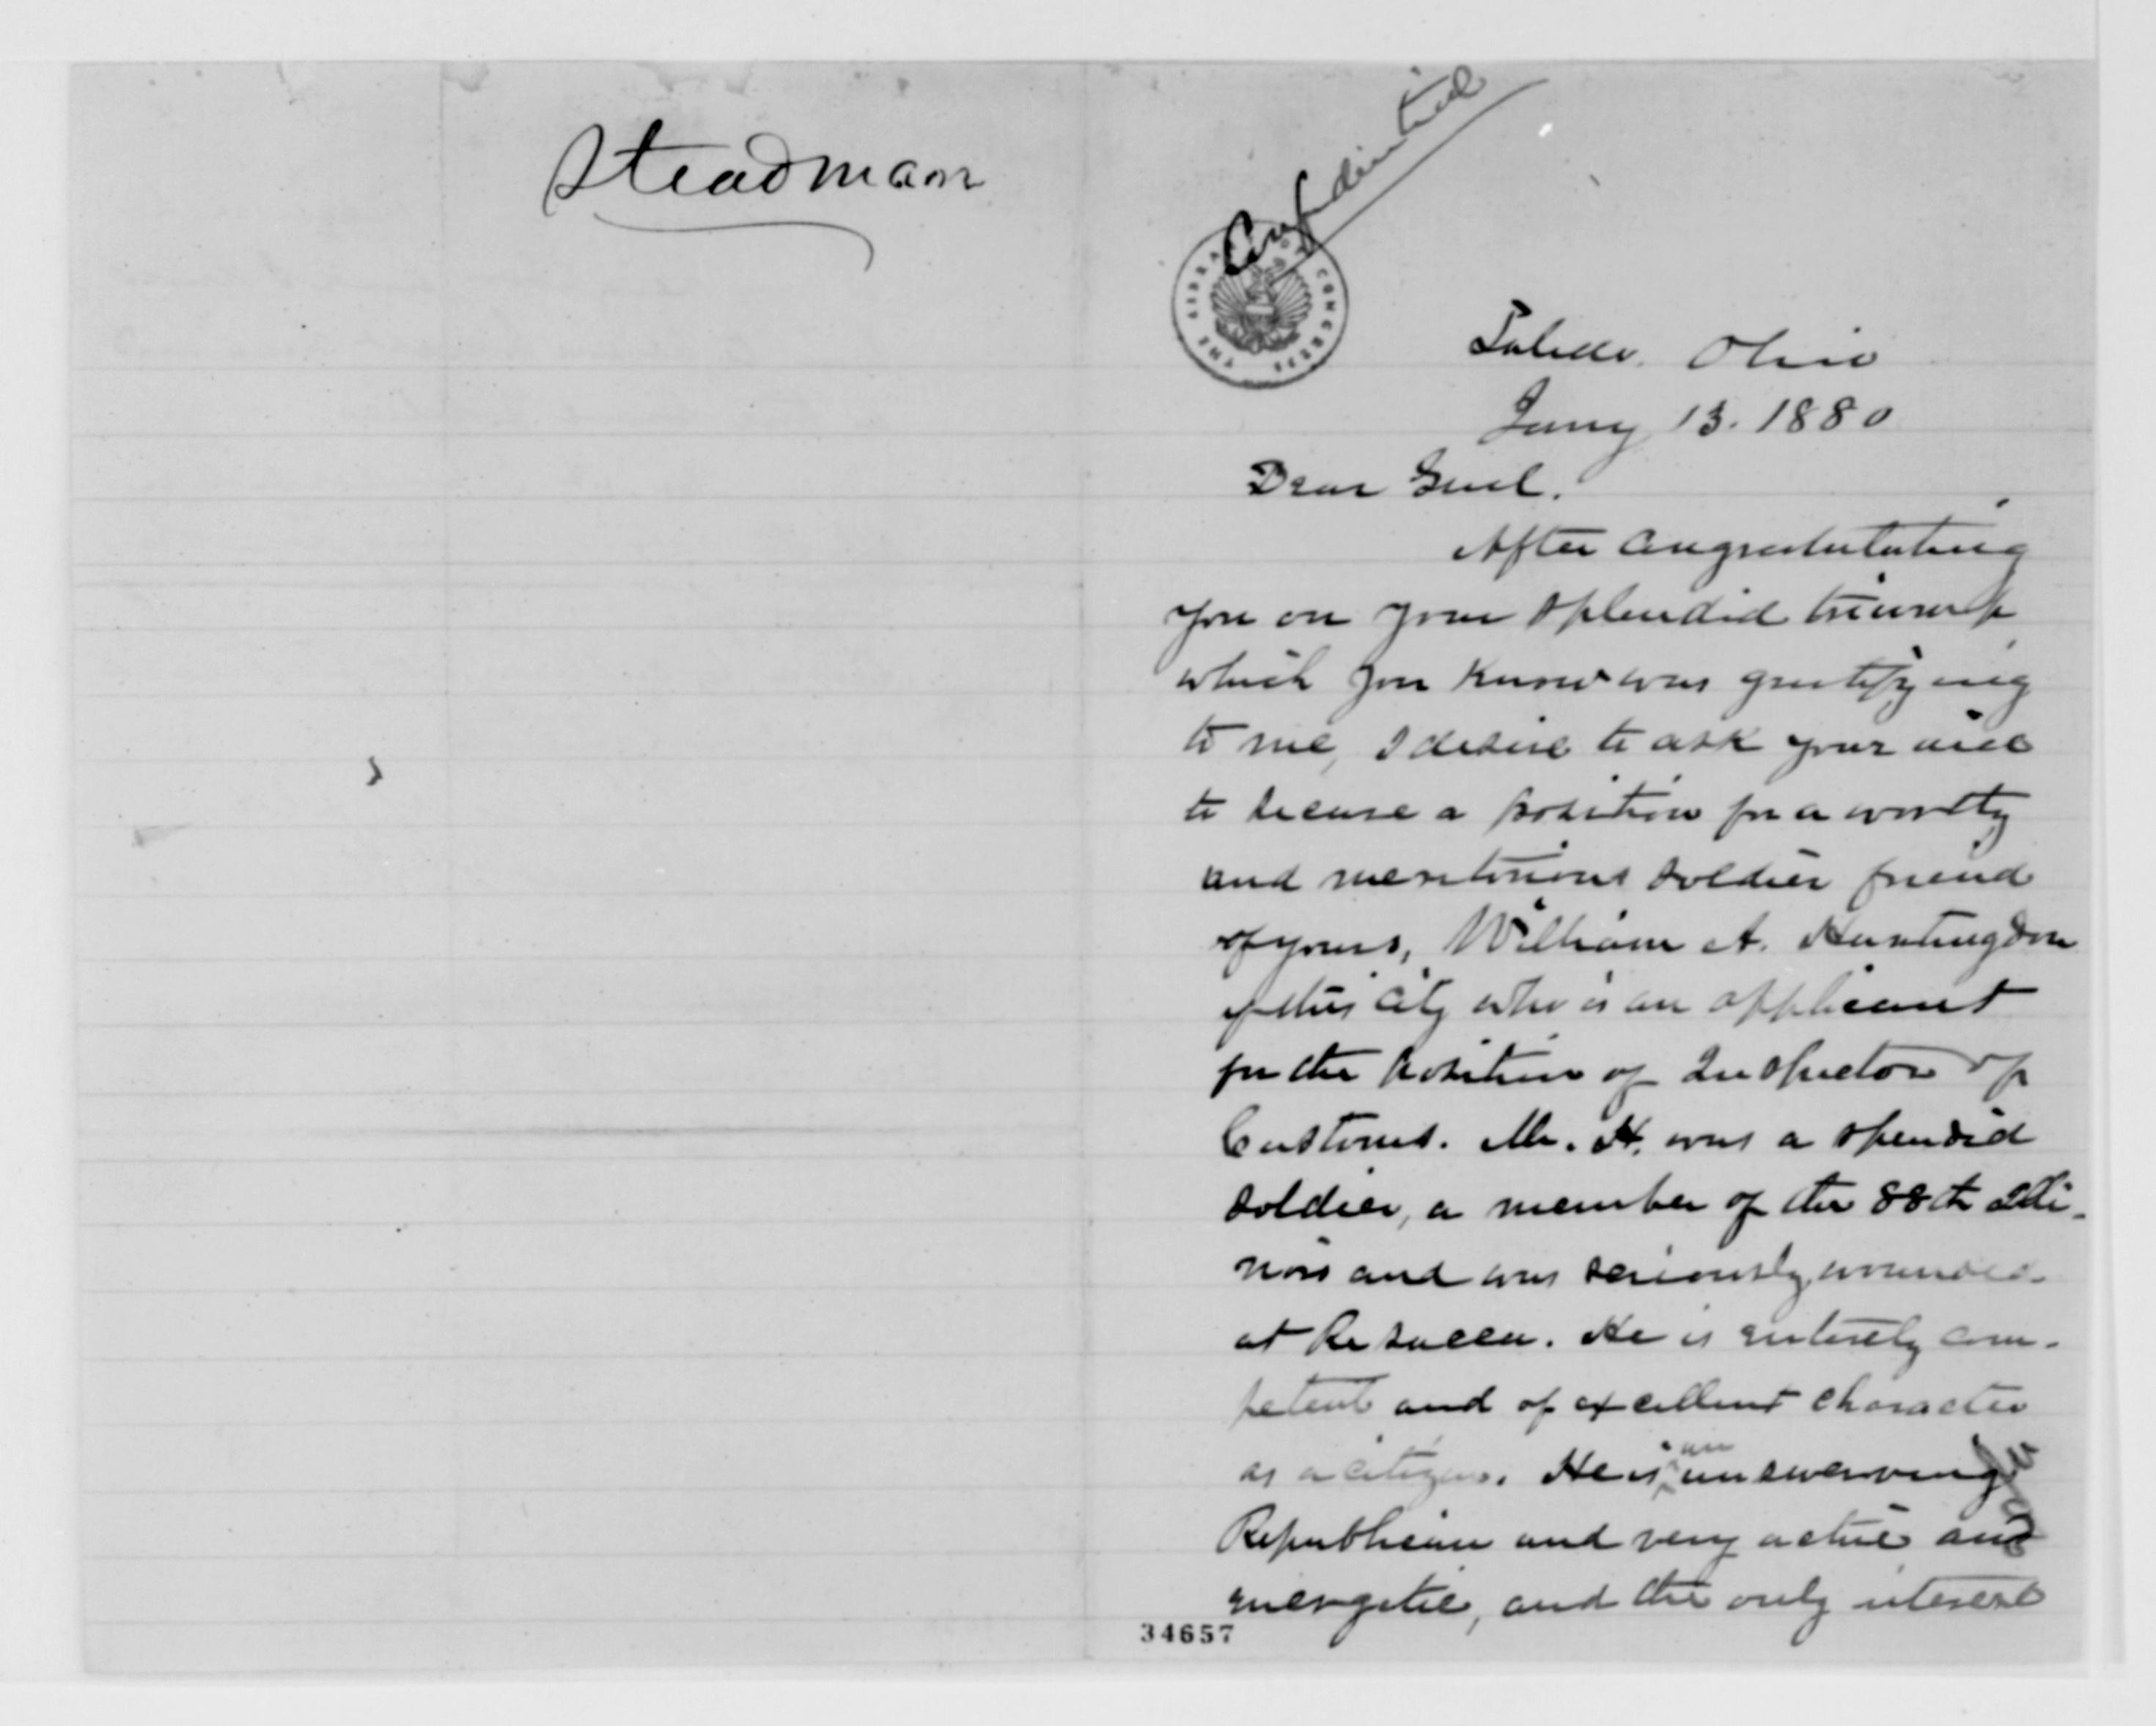 Steadman
Confidential
THE LIBRARY OF CONGRESS
Toledo. Ohio
Jany 13. 1880
Dear Genl.
After Congratulating
you on your splendid triumph
which you know was gratifying
to me, I desire to ask your aid
to secure a position for a worthy
and meritorious soldier friend
of yours, William A. Huntingdon
of this city who is an applicant
for the position of Inspector of
Customs. Mr. H. was a spendid
soldier, a member of the 88th Illi-
nois and was seriously wounded
at Resacca. He is entirely com-
petent and of excellent character
as a citizen. He is an unswerving
Republican and very active and
energetic, and the only interest
34657